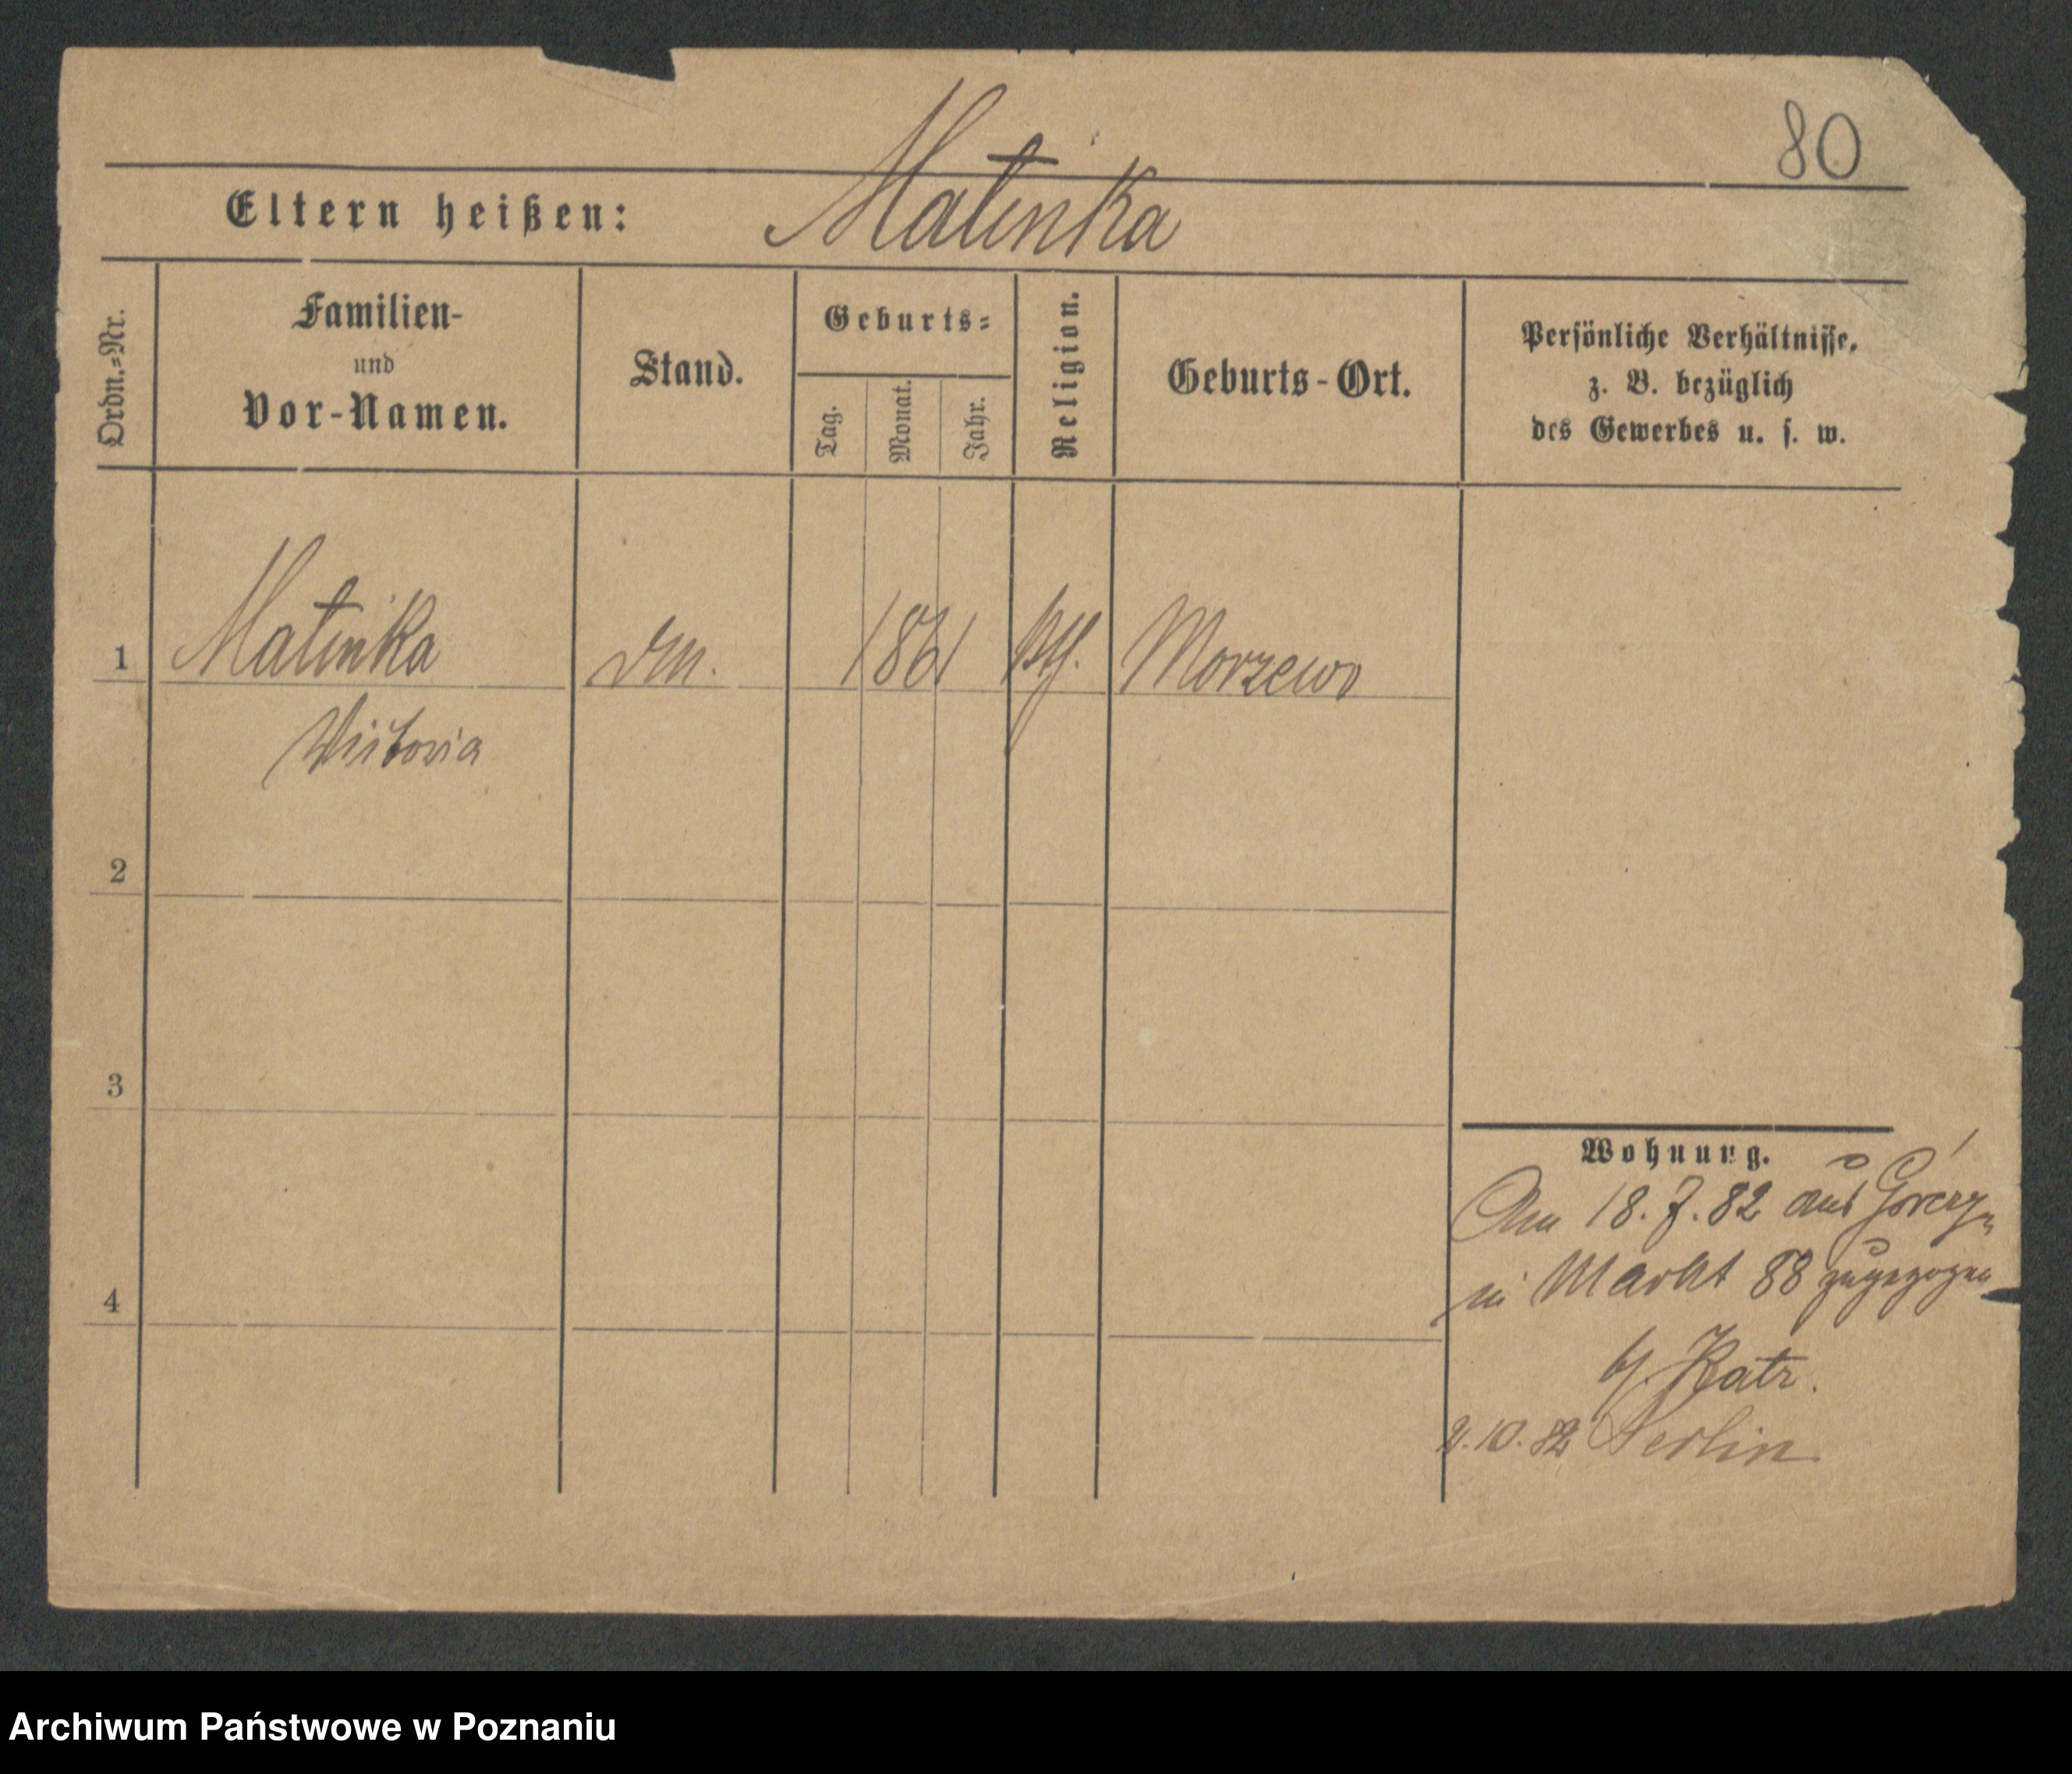 80
Eltern heißen: Matinka
Ordn.=Nr.
Familien-
und
Vor-Namen.
Stand.
Geburts=
Tag.
Monat.
Jahr.
Religion.
Geburts-Ort.
Persönliche Verhältnisse,
z. B. bezüglich
des Gewerbes u. s. w.
1 Matinka 1861 Morzewo
Victoria
2
3
4
Wohnung.
Am 18.7.82 aus
in Markt 88 zugezogen
b/. Katz.
2.10.82 Berlin
Archiwum Państwowe w Poznaniu